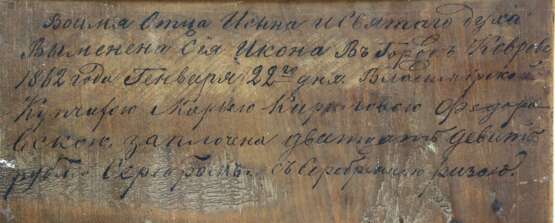 Воимя Отца Исына исвятаго духа
Выменена Сія Икона Въ Городѣ Коврове
1862 года Генваря 22го дня Владимірской
Купчихою Марьею Кириловою Федоро
вскою. заплочена дватцать девить
рубл. Серебромъ. съсеребряною ризою.